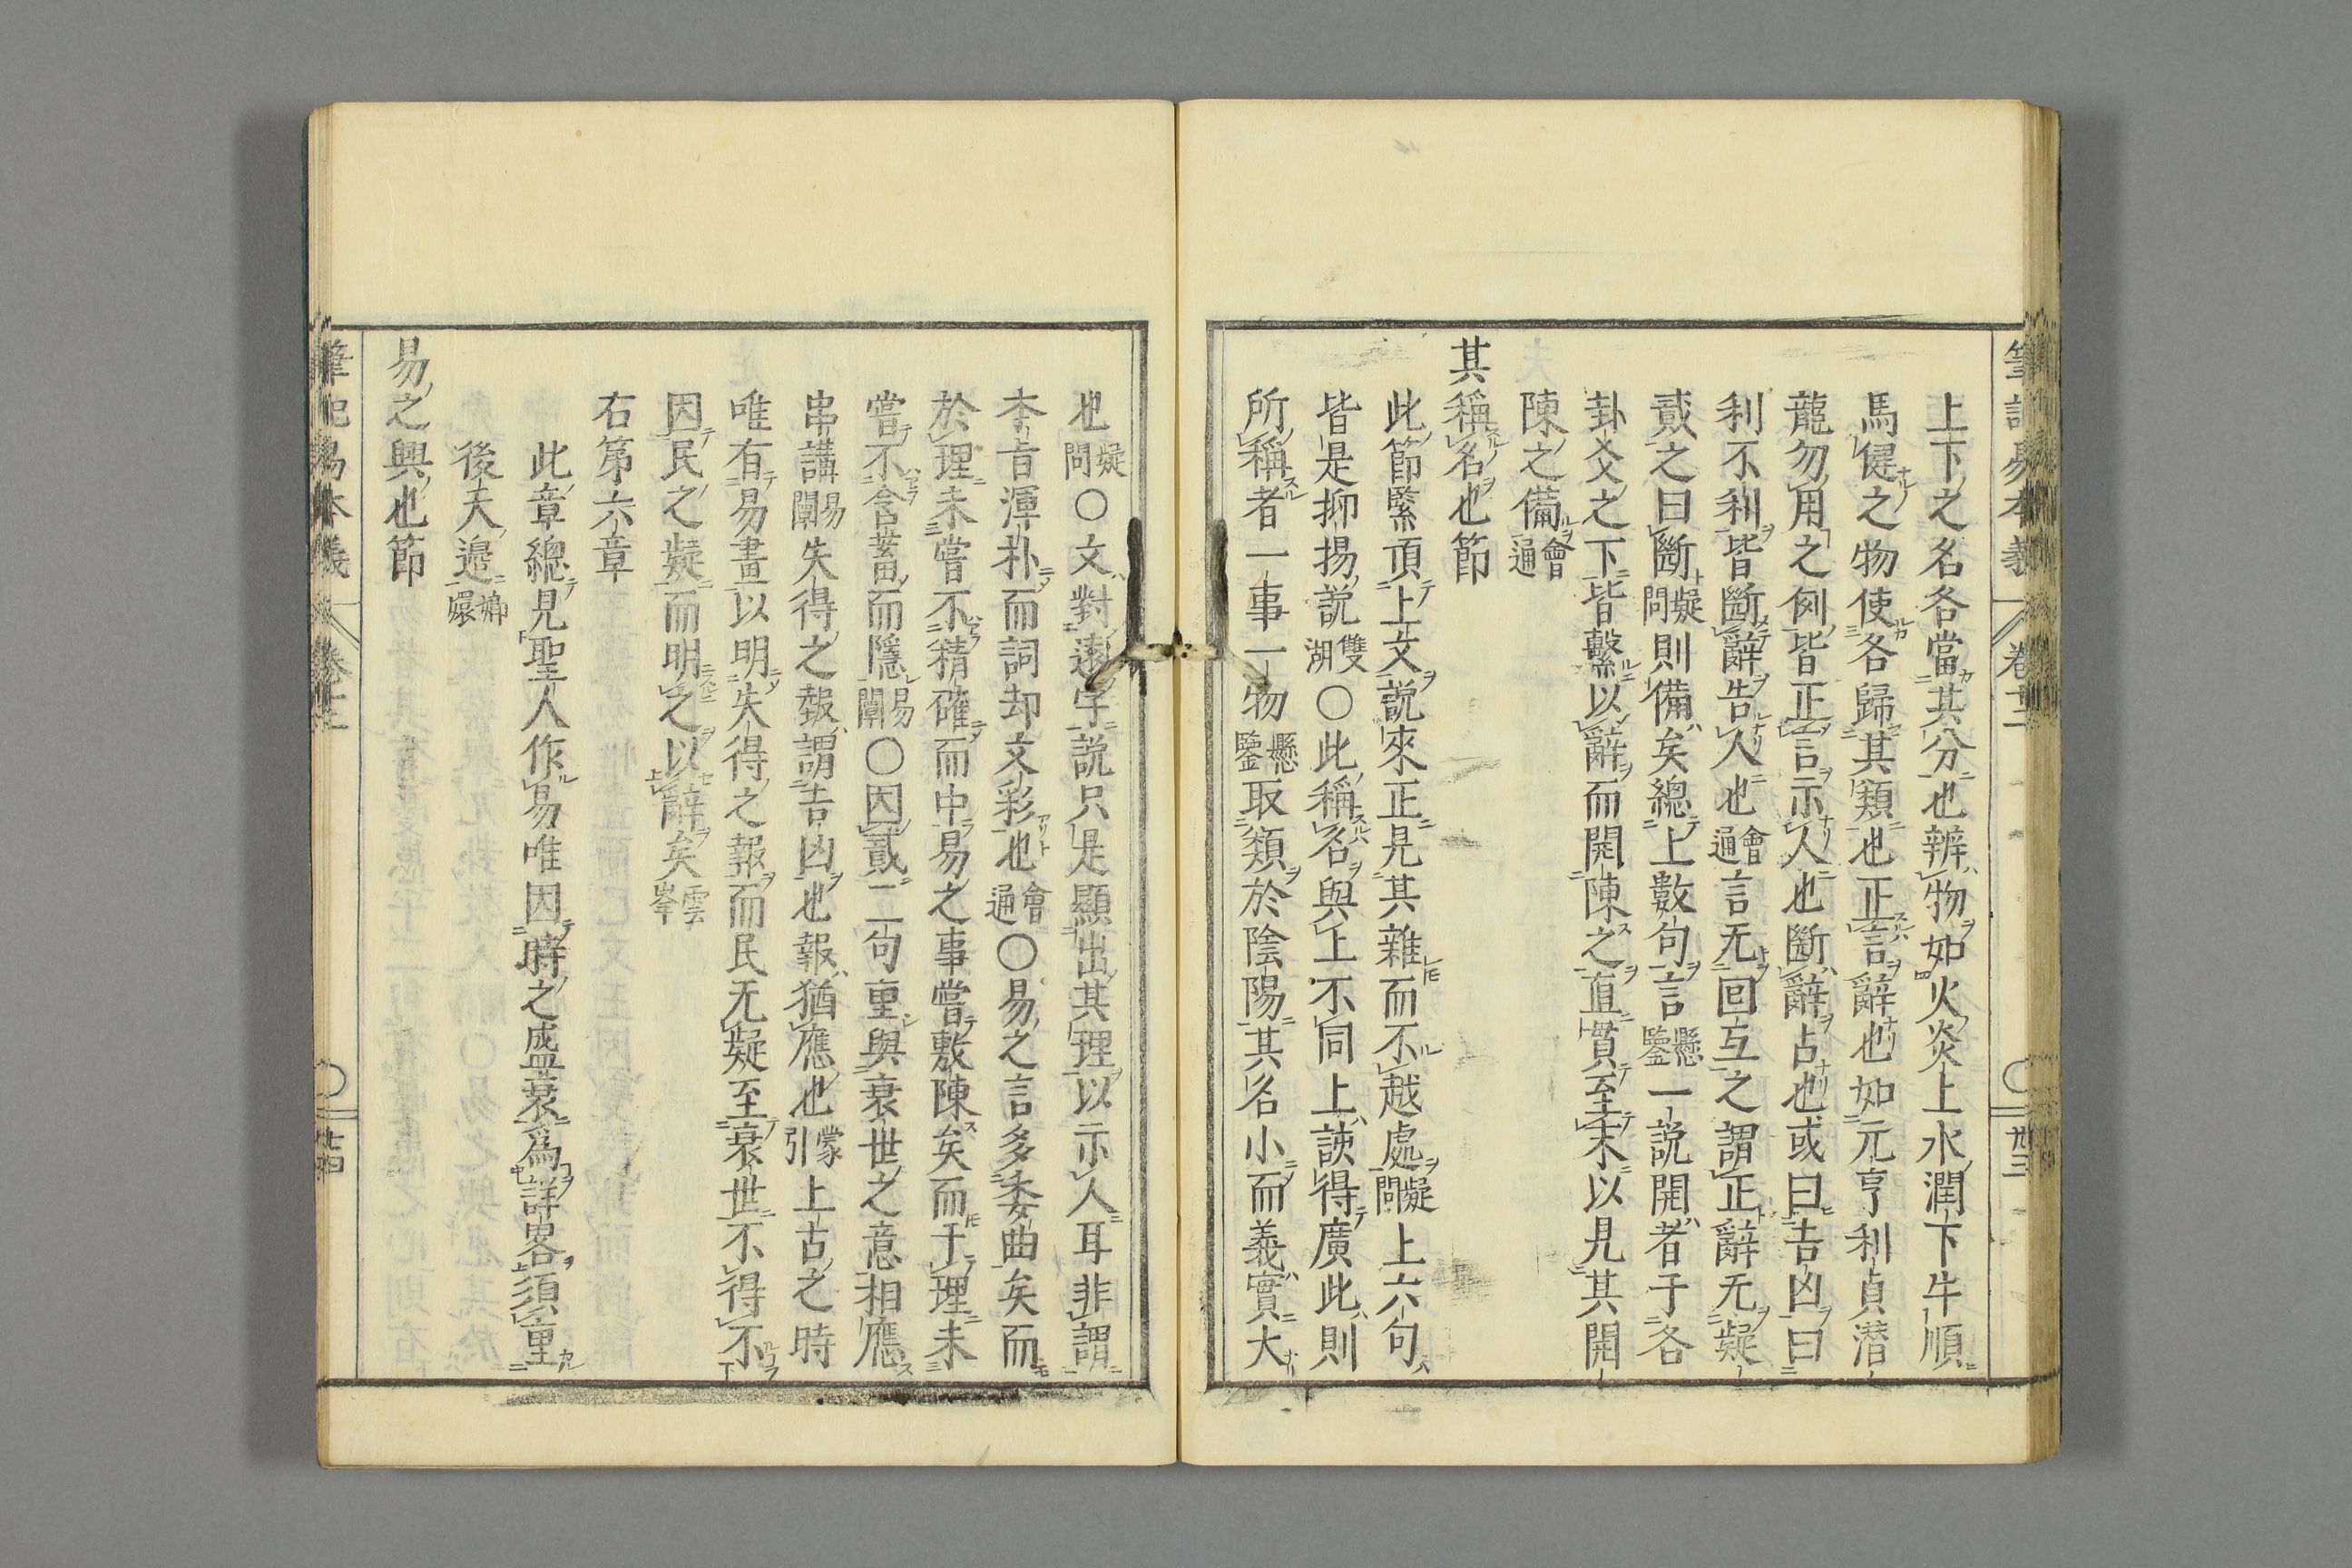 筆記易本義 卷十二 〇 卅三
上下之名各當其分也辨物如火炎上水潤下牛順
馬健之物使各歸其類也正言辭也如元亨利貞潜
龍勿用之例皆正言示人也斷辭占也或曰吉凶曰
利不利皆斷辭告人也會通言无回互之謂正辭无疑
貳之曰斷疑問則備矣總上數句言懸鑒一說開者于各
卦爻之下皆繫以辭而開陳之直貫至末以見其開
陳之備會通
其稱名也節
此節緊頂上文說來正見其雜而不越處疑問上六句
皆是抑揚説雙湖〇此稱名與上不同上該得廣此則
所稱者一事一物懸鑒取類於陰陽其名小而義實大
也疑問〇文對遠字説只是顯出其理以示人耳非謂
本旨渾朴而詞却文彩也會通〇易之言多委曲矣而
於理未嘗不精確而中易之事嘗敷陳矣而于理未
嘗不含蓄而隱易闡〇因貳二句重與衰世之意相應
串講易闡失得之報謂吉凶也報猶應也蒙引上古之時
唯有易畫以明失得之報而民无疑至衰世不得不
因民之疑而明之以辭矣雲峯
右第六章
此章總見聖人作易唯因時之盛衰爲詳畧須重
後天邉嫏嬛
易之興也節
筆記易本義 卷十二 〇 廿四